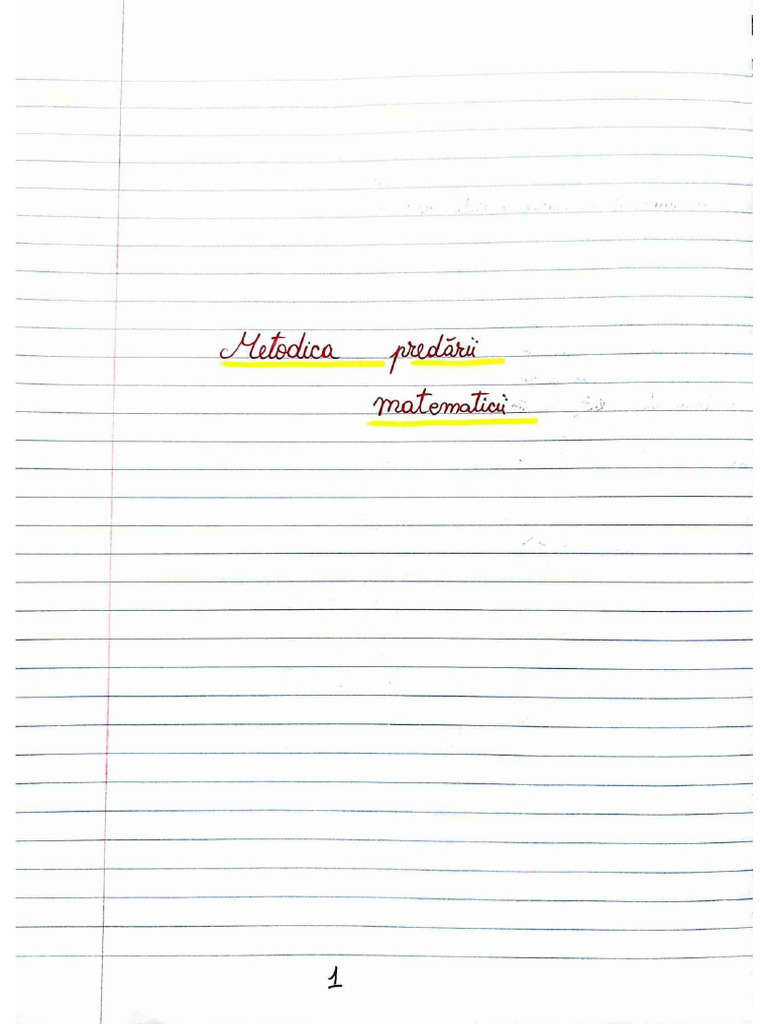 Metodica predării
matematicii
1